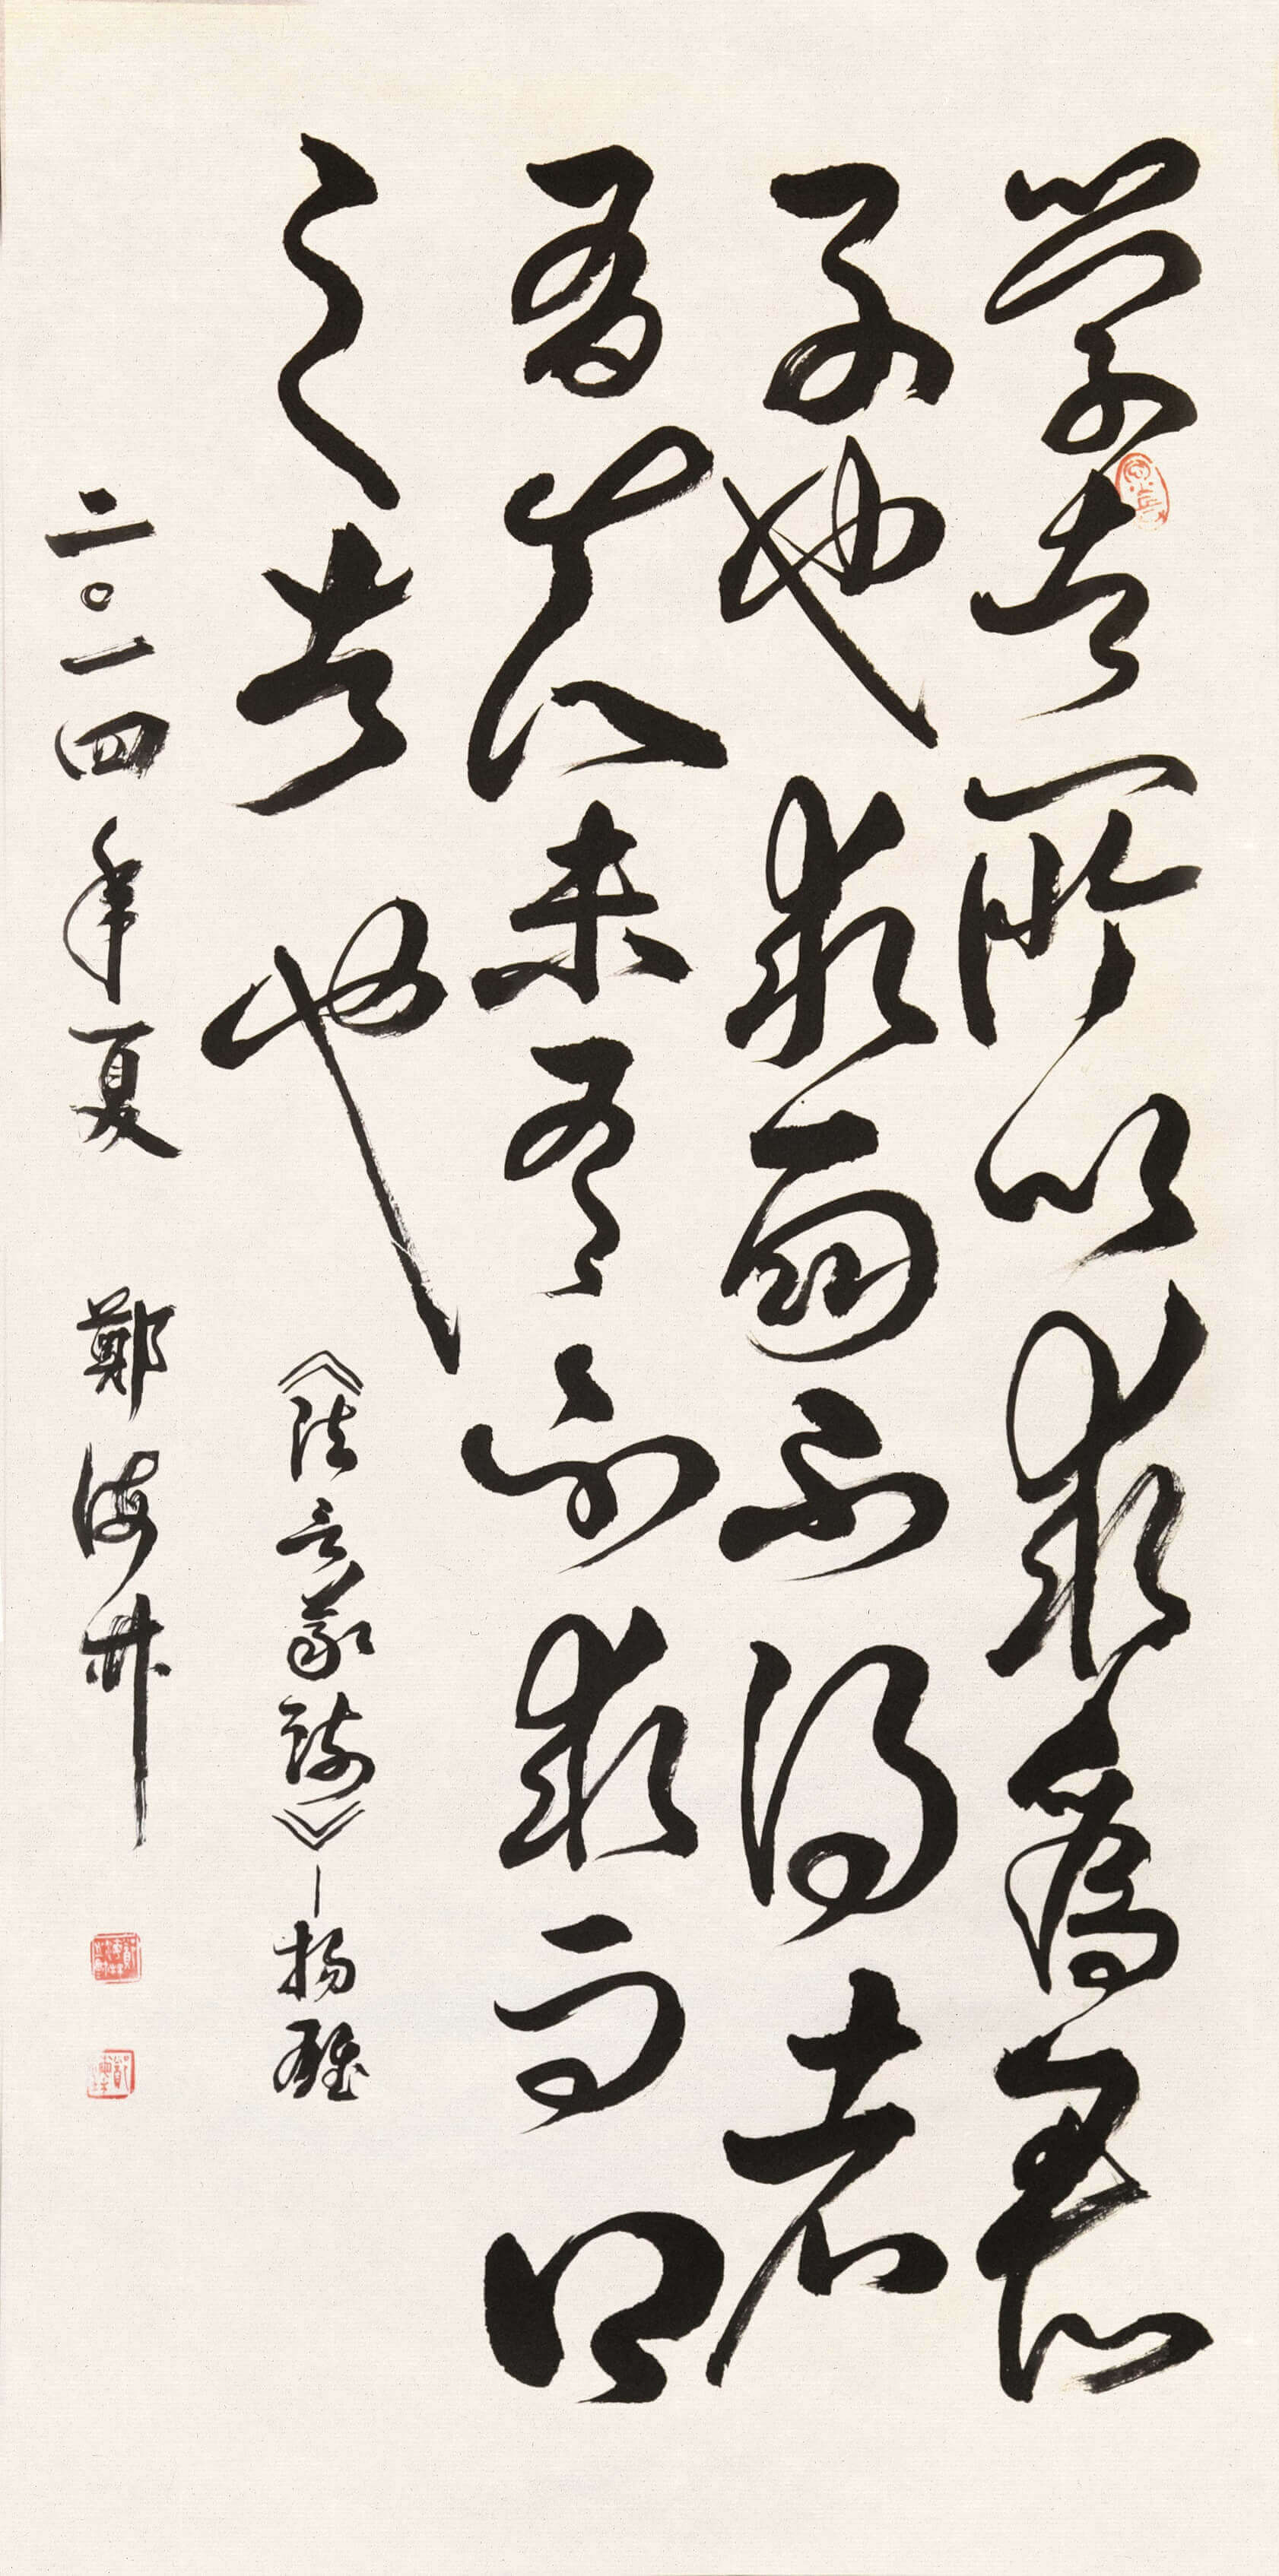 學者所以求為君
子也求而不得者
有矣夫未有不求而得
之者也
《法言義疏》—揚雄
二〇一四年夏 鄭海林